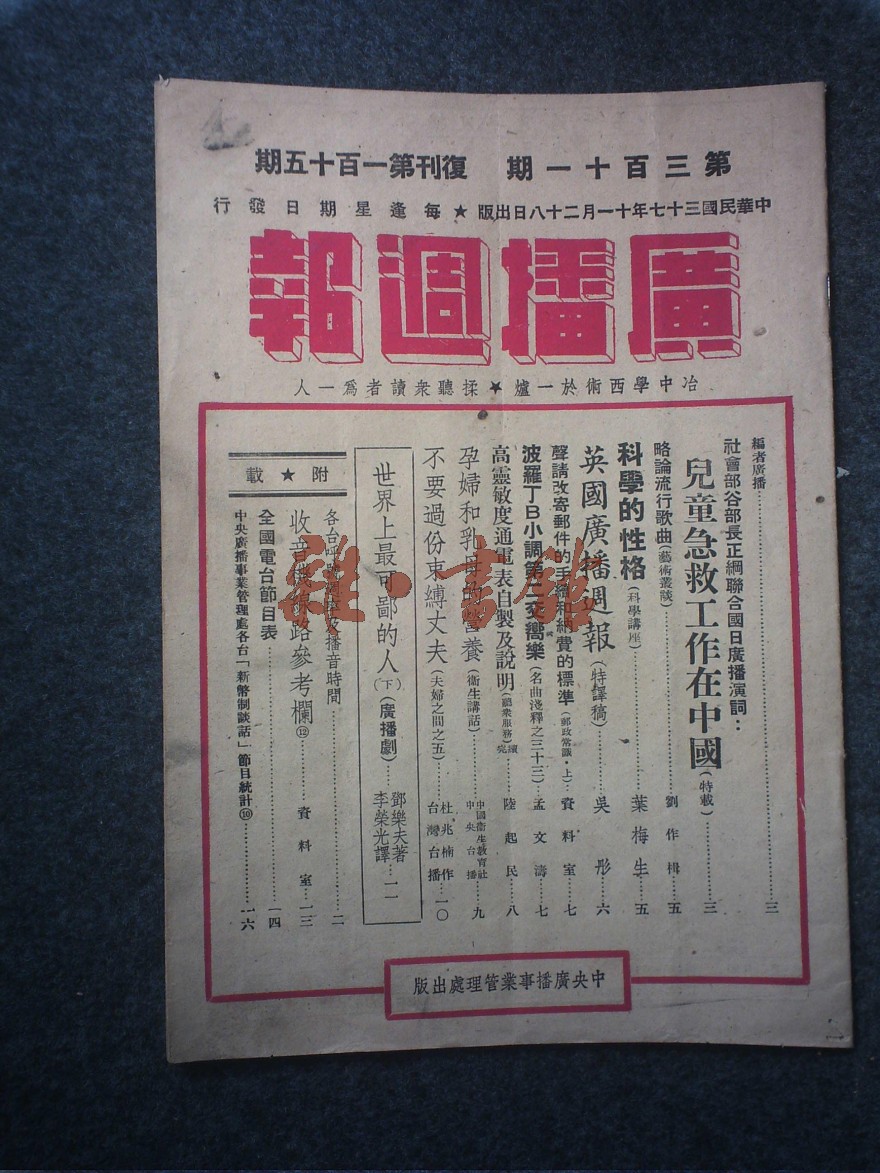 第三百十一期　復刊第一百十五期
中華民國三十七年十一月二十八日出版★每逢星期日發行
廣播週報
冶中學西術於一爐★揉聽衆讀者爲一人
編者廣播……三
社會部谷部長正綱聯合國日廣播演詞：
兒童急救工作在中國（特載）……三
略論流行歌曲（藝術叢談）……劉作楫……五
科學的性格（科學講座）……葉梅生……五
英國廣播週報（特譯稿）……吳彤……六
聲請改寄郵件的手續和納費的標準（郵政常識・上）……資料室……七
波羅丁B小調第二交嚮樂（名曲淺釋之三十三）……孟文濤……七
高靈敏度通電表自製及說明（聽衆服務續完）……陸起民……八
孕婦和乳母的營養（衞生講話）……中國衞生教育社 中央台播……九
不要過份束縛丈夫（夫婦之間之五）……杜兆楠作 台灣台播……一〇
世界上最可鄙的人（下）（廣播劇）……鄧樂夫著 李榮光譯……一一
附★載
各台呼號週率及播音時間……二
收音機線路參考欄⑫……資料室……一三
全國電台節目表……一四
中央廣播事業管理處各台「新幣制談話」節目統計⑩……一六
中央廣播事業管理處出版
雜・書館